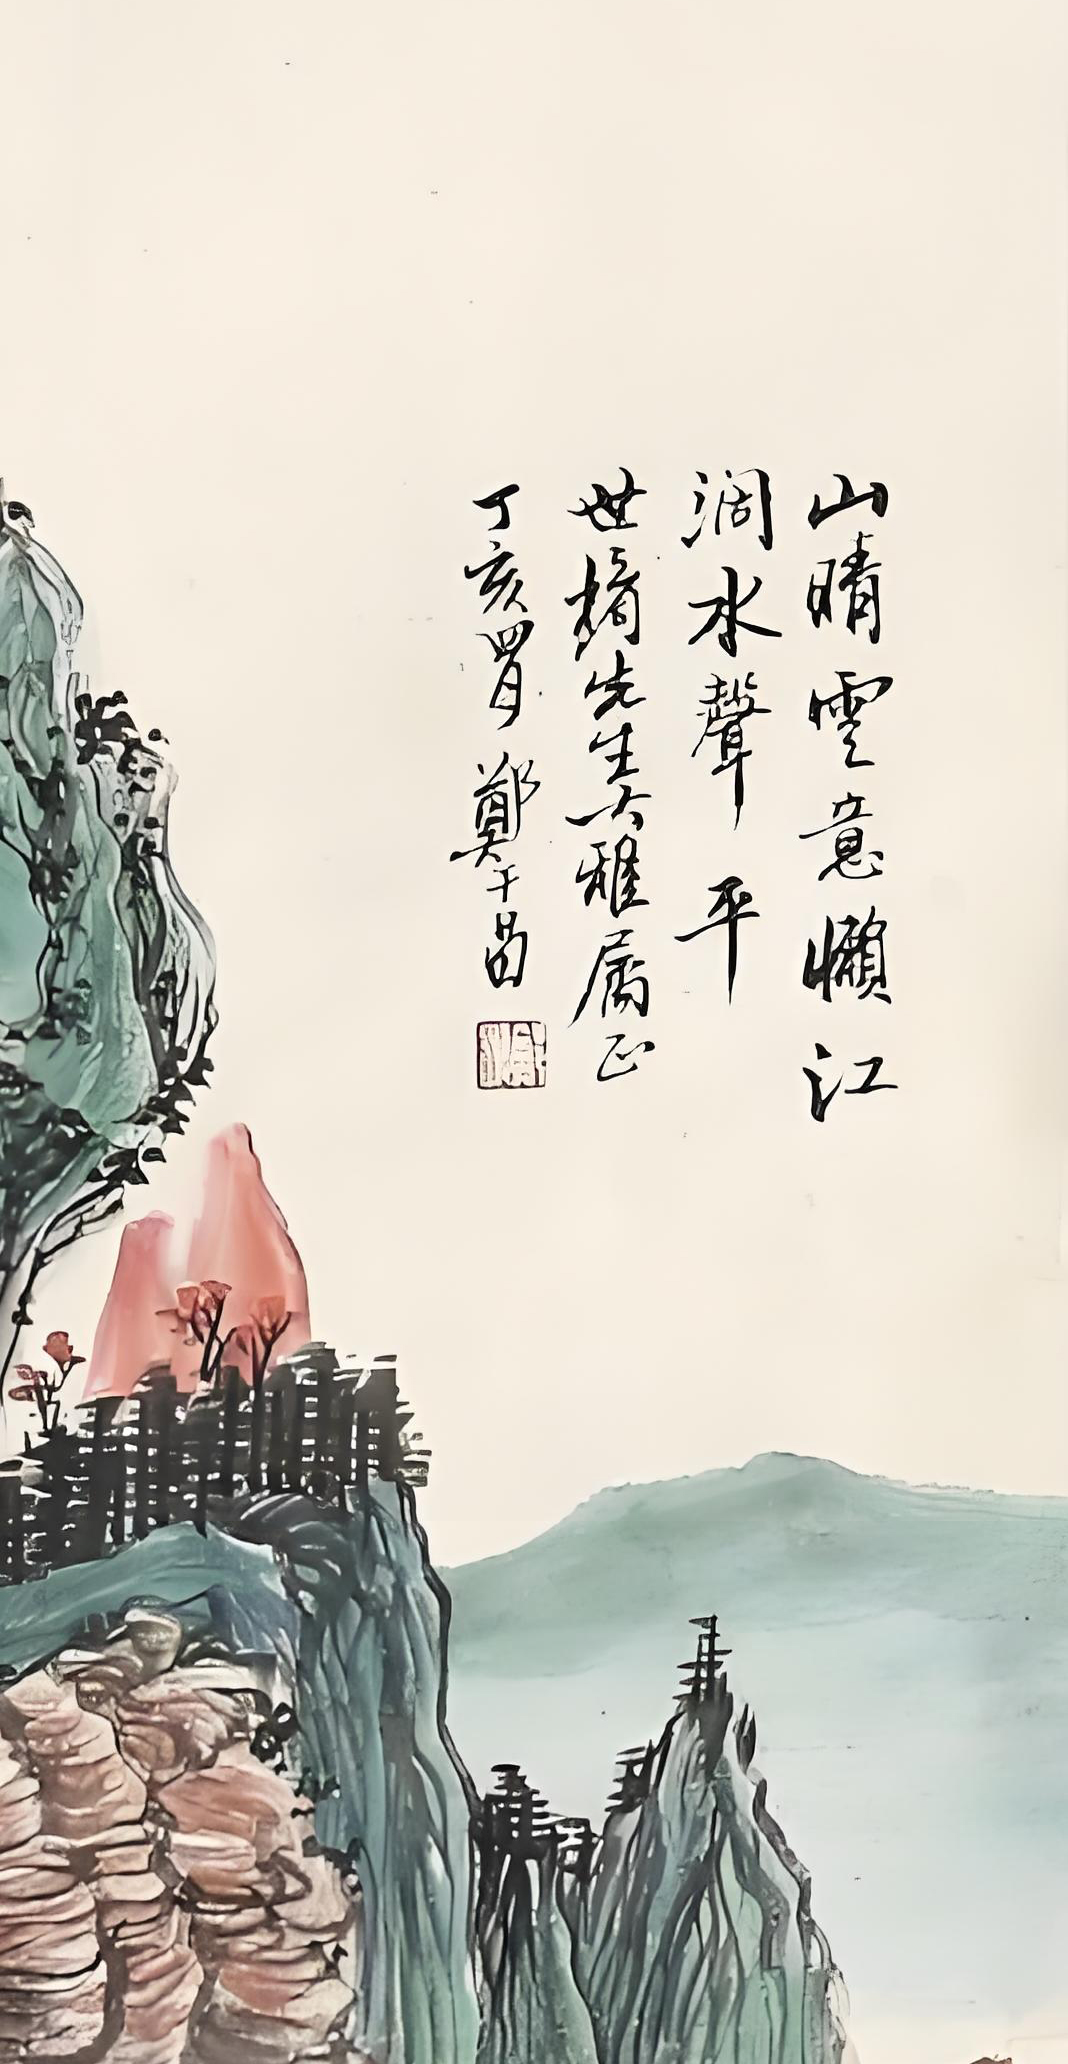 山晴雲意懶江
澗水聲平
世楕先生大雅属正
丁亥四月 鄭午昌